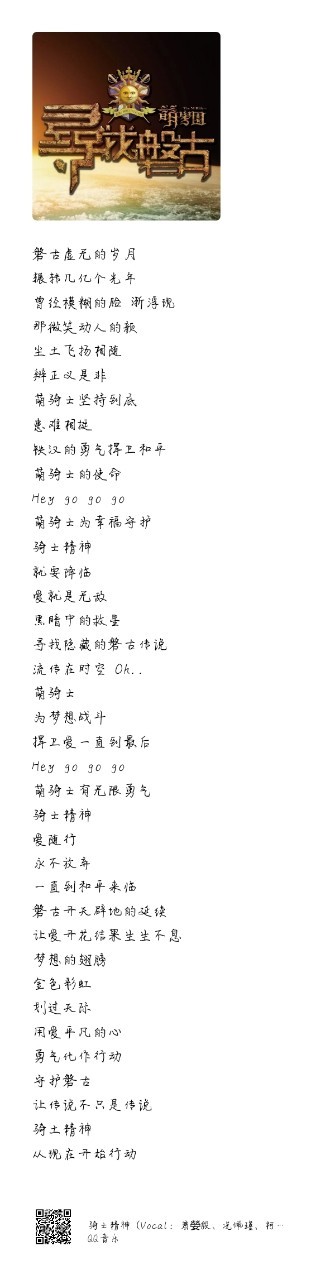 萌學園
尋找盤古
磐古虚无的岁月
辗转几亿个光年
曾经模糊的脸 渐浮现
那微笑动人的颖
尘土飞扬相随
辩正义是非
萌骑士坚持到底
患难相挺
铁汉的勇气捍卫和平
萌骑士的使命
Hey go go go
萌骑士为幸福守护
骑士精神
就要降临
爱就是无敌
黑暗中的救星
寻找隐藏的磐古传说
流传在时空 Oh..
萌骑士
为梦想战斗
捍卫爱一直到最后
Hey go go go
萌骑士有无限勇气
骑士精神
爱随行
永不放弃
一直到和平来临
磐古开天辟地的延续
让爱开花结果生生不息
梦想的翅膀
金色彩虹
划过天际
用爱平凡的心
勇气化作行动
守护磐古
让传说不只是传说
骑士精神
从现在开始行动
骑士精神 (Vocal: 萧
QQ音乐